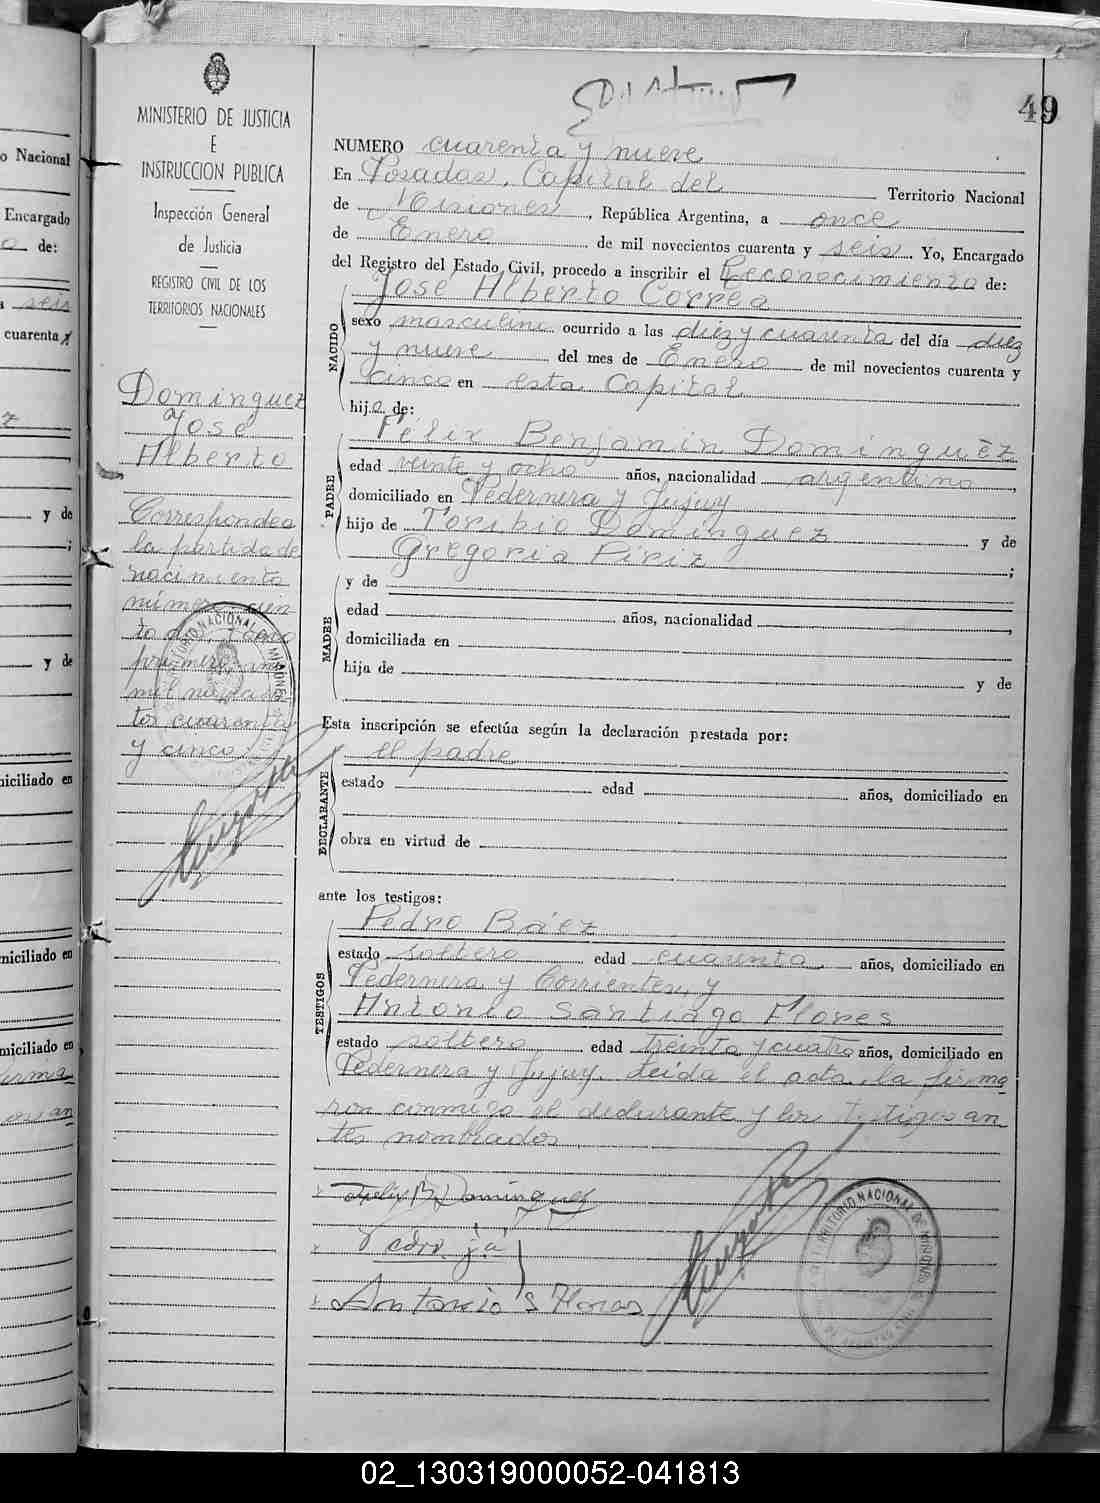 49
MINISTERIO DE JUSTICIA
E
INSTRUCCION PUBLICA
Inspección General
de Justicia
REGISTRO CIVIL DE LOS
TERRITORIOS NACIONALES
Dominguez
José
Alberto
Corresponde a
la partida de
nacimiento
número cien
to
primero
mil novecien
tos cuarenta
y cinco
NUMERO cuarenta y nueve
En Posadas, Capital del Territorio Nacional
de Misiones, República Argentina, a once
de Enero de mil novecientos cuarenta y seis. Yo, Encargado
del Registro del Estado Civil, procedo a inscribir el Reconocimiento de:
José Alberto Correa
NACIDO
sexo masculino ocurrido a las diez y cuarenta del día diez
y nueve del mes de Enero de mil novecientos cuarenta y
cinco en esta Capital
hijo de:
Felix Benjamin Dominguez
PADRE
edad veinte y ocho años, nacionalidad argentino,
domiciliado en Pedernera y Jujuy
hijo de Toribio Dominguez y de
Gregoria Piriz;
MADRE
y de
edad años, nacionalidad,
domiciliada en
hija de y de
Esta inscripción se efectúa según la declaración prestada por:
el padre
DECLARANTE
estado edad años, domiciliado en
obra en virtud de
ante los testigos:
Pedro Báez
TESTIGOS
estado soltero edad cuarenta años, domiciliado en
Pedernera y Corrientes, y
Antonio Santiago Flores
estado soltero edad treinta y cuatro años, domiciliado en
Pedernera y Jujuy. Leida el acta, la firma
ron conmigo el declarante y los testigos an
tes nombrados
Felix B. Dominguez
Pedro
Antonio S Flores
TERRITORIO NACIONAL DE MISIONES
o Nacional
Encargado
o de:
a seis
cuarenta y
z
y de
;
y de
niciliado en
niciliado en
niciliado en
firma
os an
02_130319000052-041813